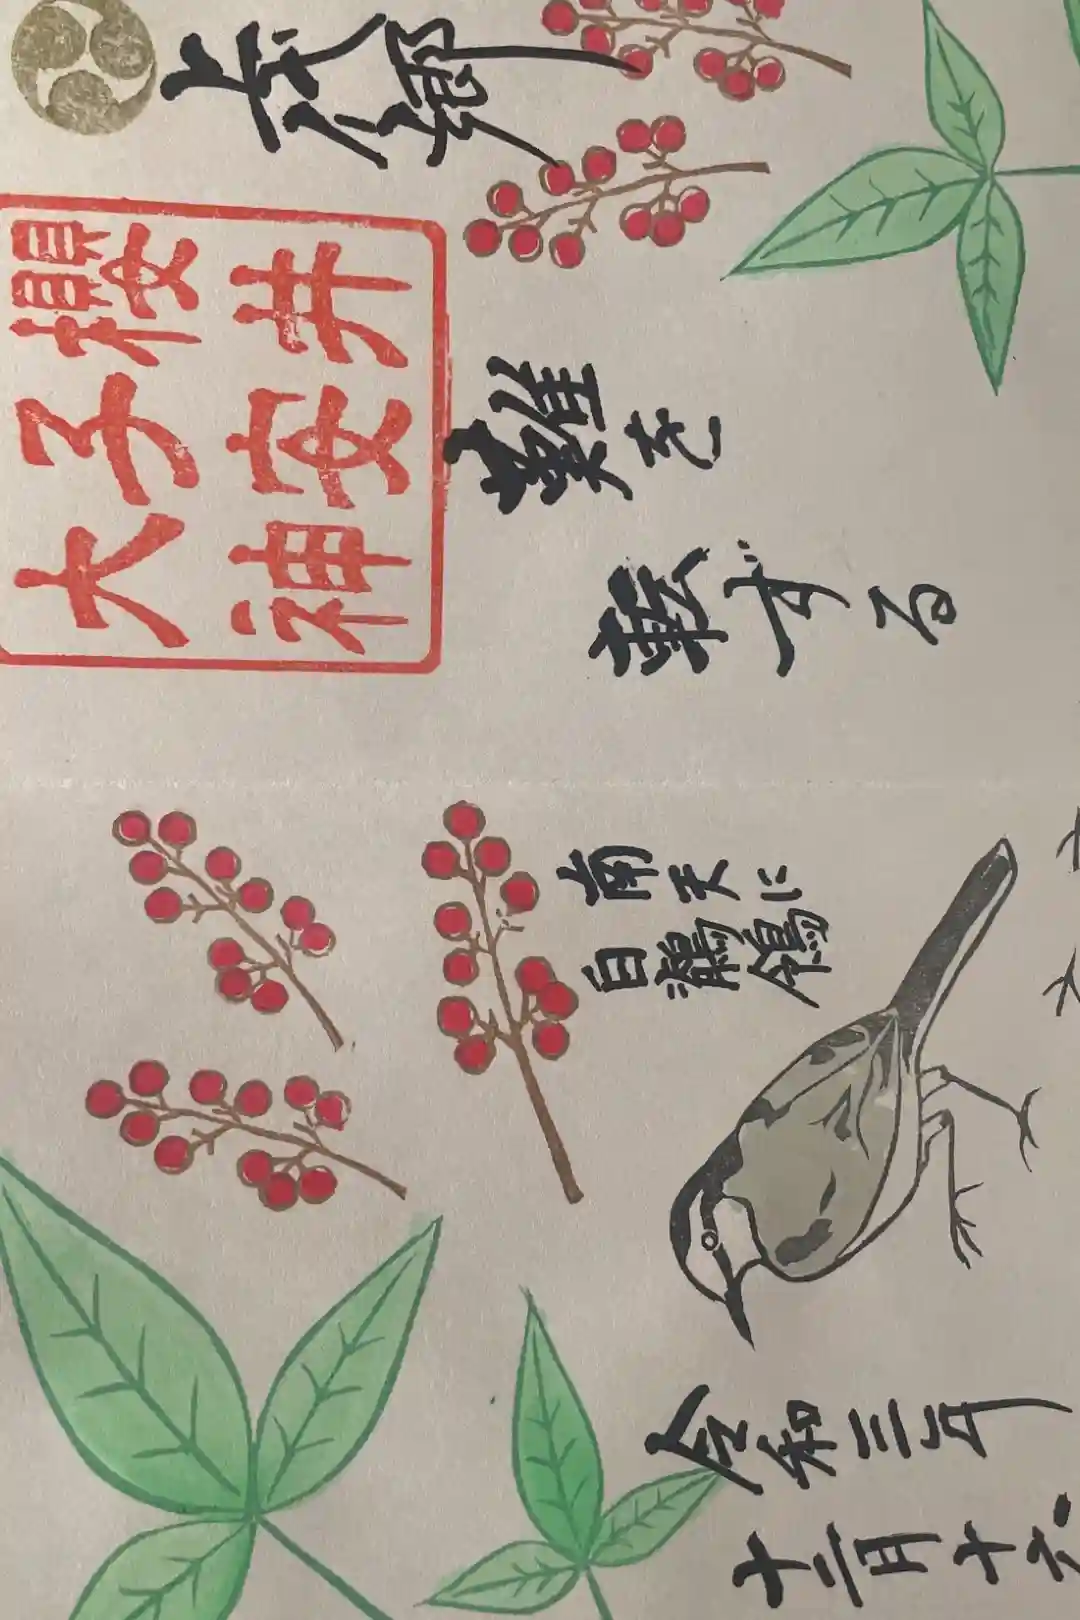 櫻井
子安
大神
難を
転ずる
南天に
白鶺鴒
令和三年
十二月十六